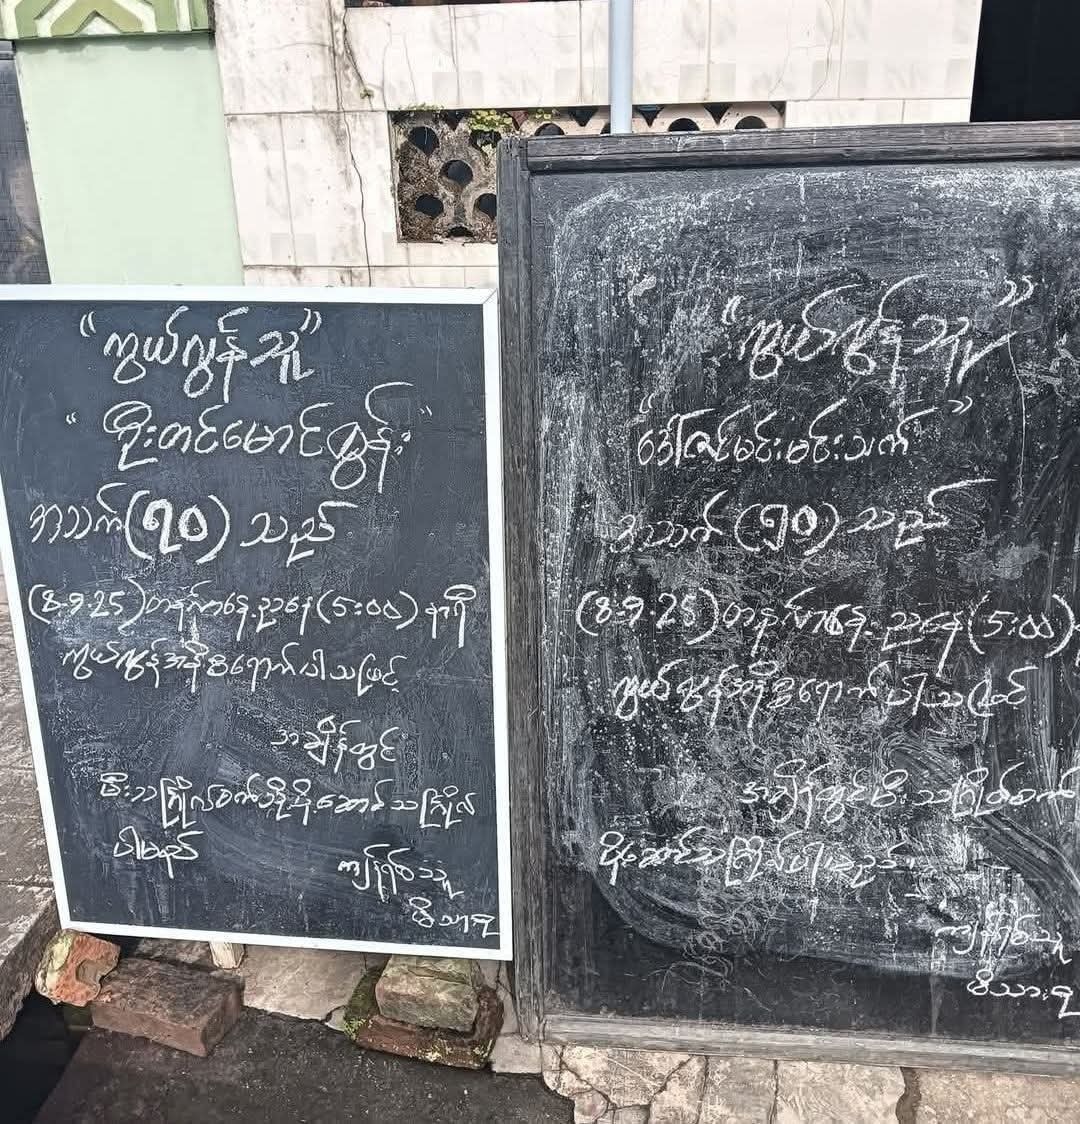 "ကွယ်လွန်သူ"
"ဦးတင်မောင်ထွန်း"
အသက်(၇၀)သည်
(8.9.25)တနင်္လာနေ့ညနေ(5:00)နာရီ
ကွယ်လွန်အနိစ္စရောက်ပါသဖြင့်
အချိန်တွင်
မီးသင်္ဂြိုလ်စက်သို့ပို့ဆောင်သင်္ဂြိုလ်
ပါမည်
ကျန်ရစ်သူ
မိသားစု
"ကွယ်လွန်သူ"
မင်းမင်းသက်"
အသက်(၅၀)သည်
(8.9.25)တနင်္လာနေ့ညနေ(5:00)
ကွယ်လွန်အနိစ္စရောက်ပါသဖြင့်
အချိန်တွင်မီးသင်္ဂြိုလ်စက်
ပို့ဆောင်သင်္ဂြိုလ်ပါမည်
ကျန်ရစ်သူ
မိသားစု